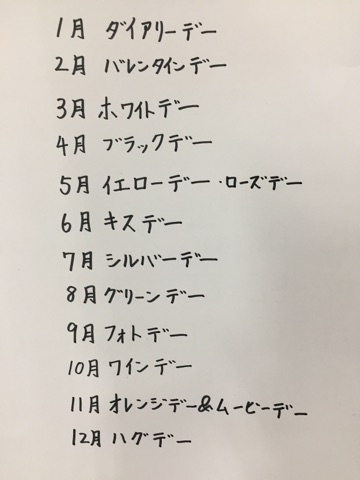 1月 ダイアリーデー
2月 バレンタインデー
3月 ホワイトデー
4月 ブラックデー
5月 イエローデー・ローズデー
6月 キスデー
7月 シルバーデー
8月 グリーンデー
9月 フォトデー
10月 ワインデー
11月 オレンジデー&ムービーデー
12月 ハグデー